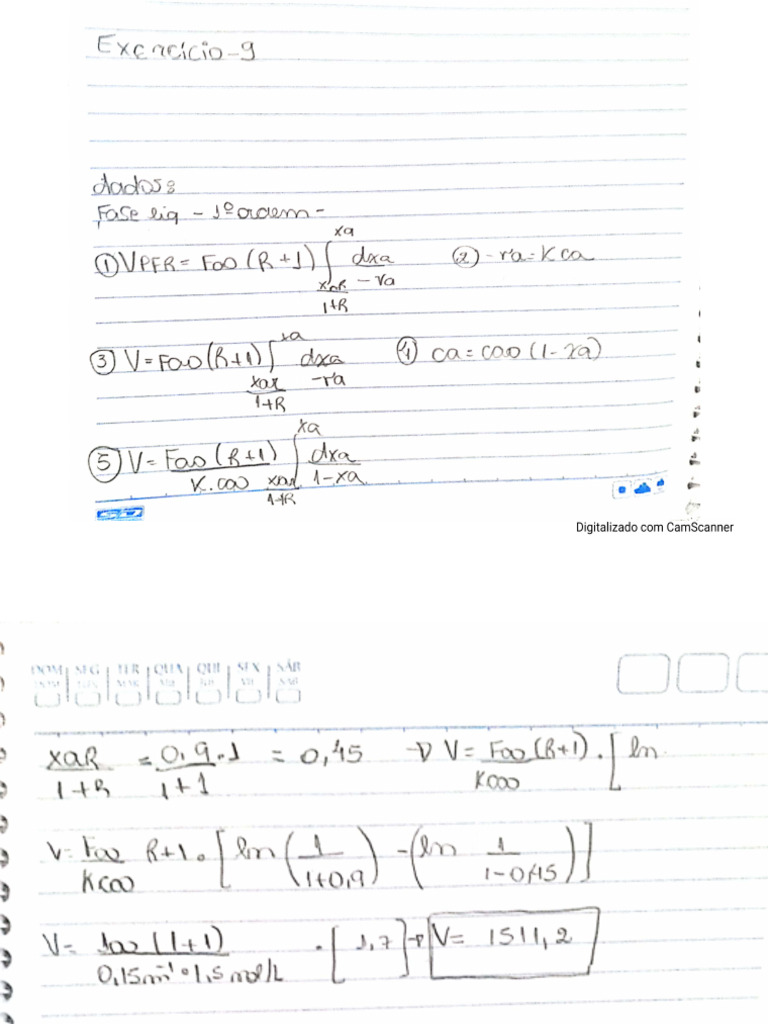 Exercício-9
dados:
Fase liq - 1º ordem -
① VPFR = Fao (R+1) ∫ xa xaR/1+R dxa/-ra ② -ra = K ca
③ V = Fao (R+1) ∫ xa xaR/1+R dxa/-ra ④ ca = cao (1-xa)
⑤ V = Fao (R+1)/K.cao ∫ xa xaR/1+R dxa/1-xa
Digitalizado com CamScanner
DOM SEG TER QUA QUI SEX SÁB
xaR/1+R = 0,9.1/1+1 = 0,45 → V = Fao (R+1)/Kcao . [ln
V = Fao/Kcao R+1 . [ln (1/1+0,9) - (ln 1/1-0,45)]
V = 100 (1+1)/0,15m⁻¹ . 1,5 mol/L . [1,7] → V = 1511,2